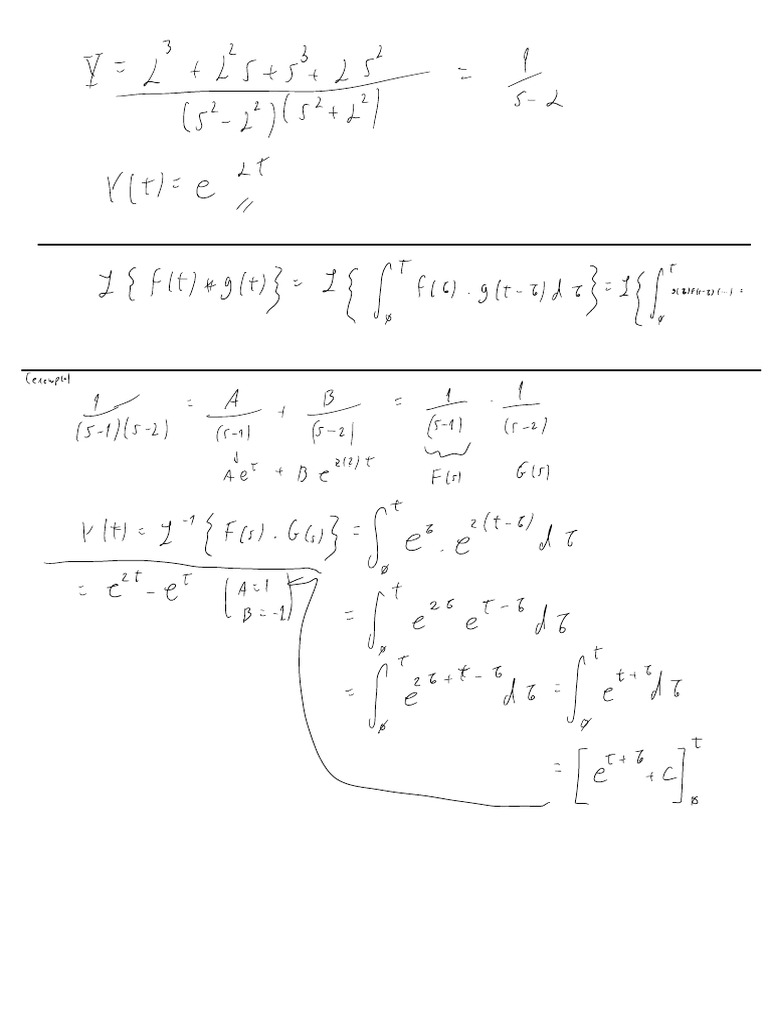 Y = 2³ + 2² s + s³ + 2 s² / (s² - 2²)(s² + 2²) = 1 / s - 2
Y(t) = e^{2t} //
ℒ { f(t) * g(t) } = ℒ { ∫_0^t f(τ) · g(t - τ) dτ } = ℒ { ∫_0^t g(τ) f(t-τ) (...) =
(exemplo)
1 / (s-1)(s-2) = A / (s-1) + B / (s-2) = 1 / (s-1) · 1 / (s-2)
↓ A e^t + B e^{2(2)t} F(s) G(s)
Y(t) = ℒ^{-1} { F(s) · G(s) } = ∫_0^t e^τ · e^{2(t-τ)} dτ
= e^{2t} - e^t ( A = 1 B = -1 ) = ∫_0^t e^{2τ} e^{t-τ} dτ
= ∫_0^t e^{2τ + t - τ} dτ = ∫_0^t e^{t+τ} dτ
= [ e^{t+τ} + C ]_0^t